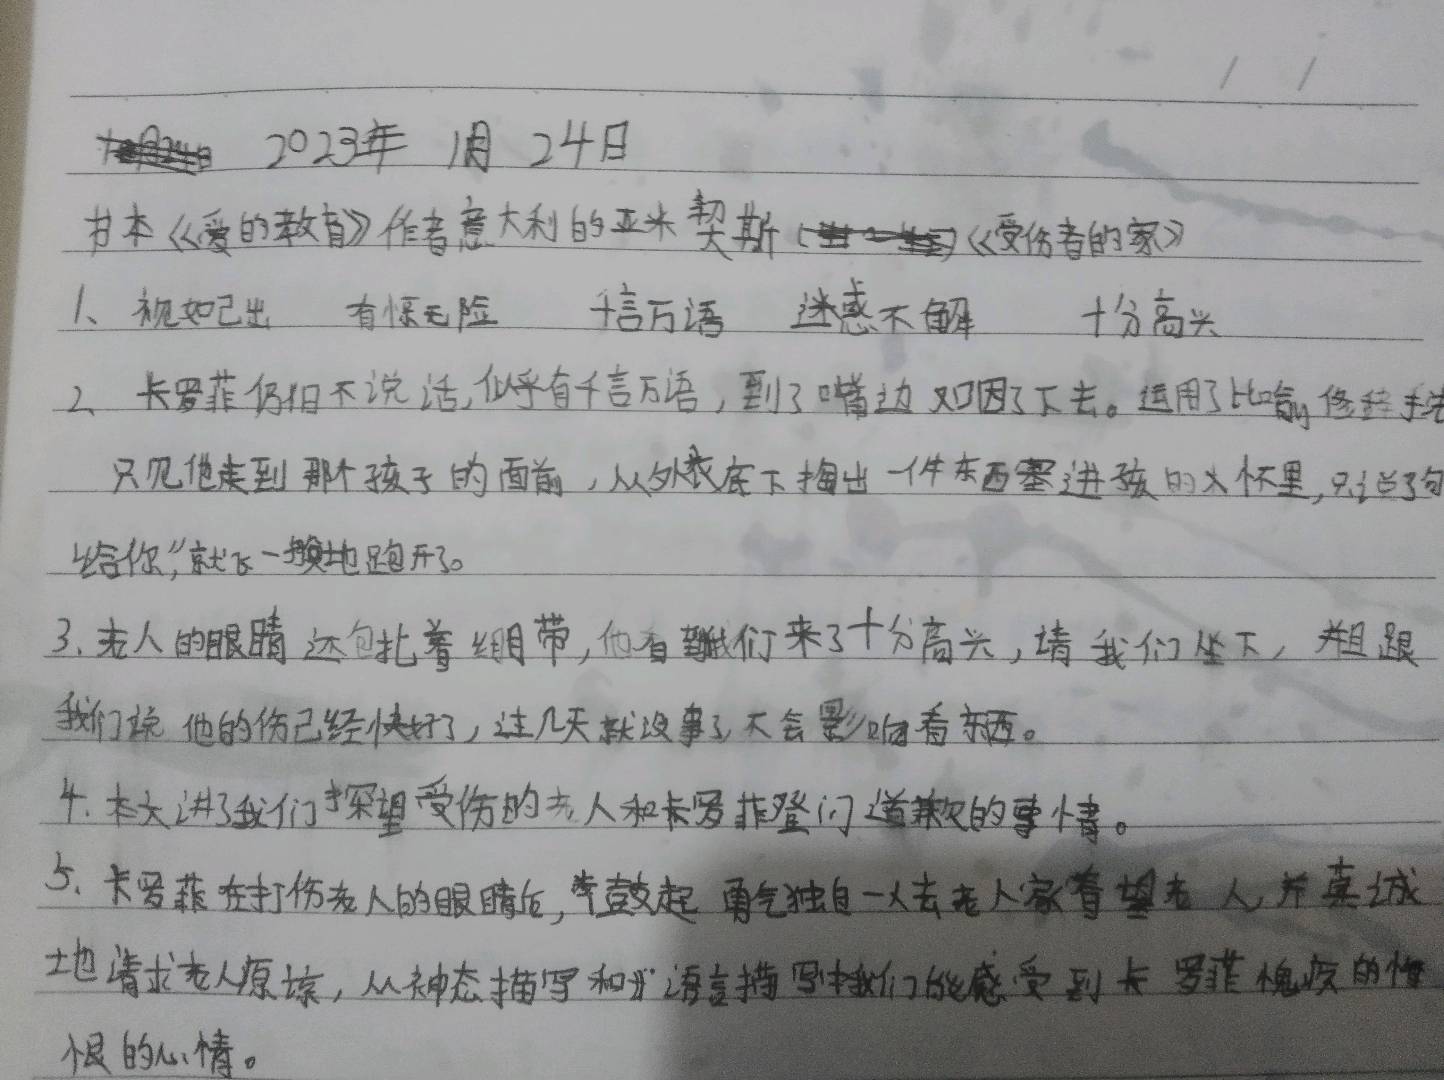 2023年 1月 24日
书本《爱的教育》作者意大利的亚米契斯《受伤者的家》
1、视如己出 有惊无险 千言万语 迷惑不解 十分高兴
2、卡罗菲仍旧不说话,似乎有千言万语,到了嘴边又咽了下去。运用了比喻修辞手法
只见他走到那个孩子的面前,从外衣底下掏出一件东西塞进孩的怀里,只说了句
“给你”,就飞一换地跑开了。
3.老人的眼睛还包扎着绷带,他看到我们来了十分高兴,请我们坐下,并且跟
我们说他的伤已经快好了,过几天就没事了,不会影响看东西。
4.本文讲了我们探望受伤的老人和卡罗菲登门道歉的事情。
5、卡罗菲在打伤老人的眼睛后,鼓起勇气独自一人去老人家看望老人,并真诚
地请求老人原谅,从神态描写和语言描写中我们能感受到卡罗菲愧疚的悔
恨的心情。